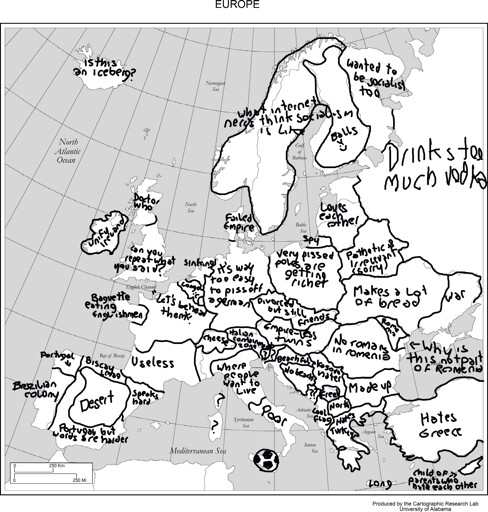 EUROPE
is this
an iceberg?
Norwegian
Sea
wanted to
be socialist
too
what internet
nerds think socialism
is like
Balls
Gulf of
Bothnia
North
Atlantic
Ocean
Drinks too
much vodka
Doctor
who
North
Sea
Failed
Empire
Baltic
Sea
Loves
each
other
Spy
Unify
Ireland
can you
repeat what
you said?
English Channel
sinful
it's way
too easy
to piss off
a german
very pissed
poles are
getting
richer
Pathetic &
irrelevant
(sorry)
Makes a Lot
of bread
war
Baguette
eating
Englishmen
Let's behead
them!
Divorced
but still
friends
Empire-less
twins
cheese
italian
No romans
in romenia
← Why is
this not part
of Romenia
Bay of Biscay
Useless
Portugal
Biscay
Brazilian
colony
Desert
Speaks
hard
Portugal but
words are harder
where
people
want to
live
Poor
?
No beach
Made up
Cool
flag
North
Hates
Greece
Adriatic
Sea
Tyrrhenian
Sea
Ionian
Sea
Aegean
Sea
Mediterranean Sea
0 250 KM
0 250 MI
LOND
child of
parents who
hate each other
Produced by the Cartographic Research Lab
University of Alabama